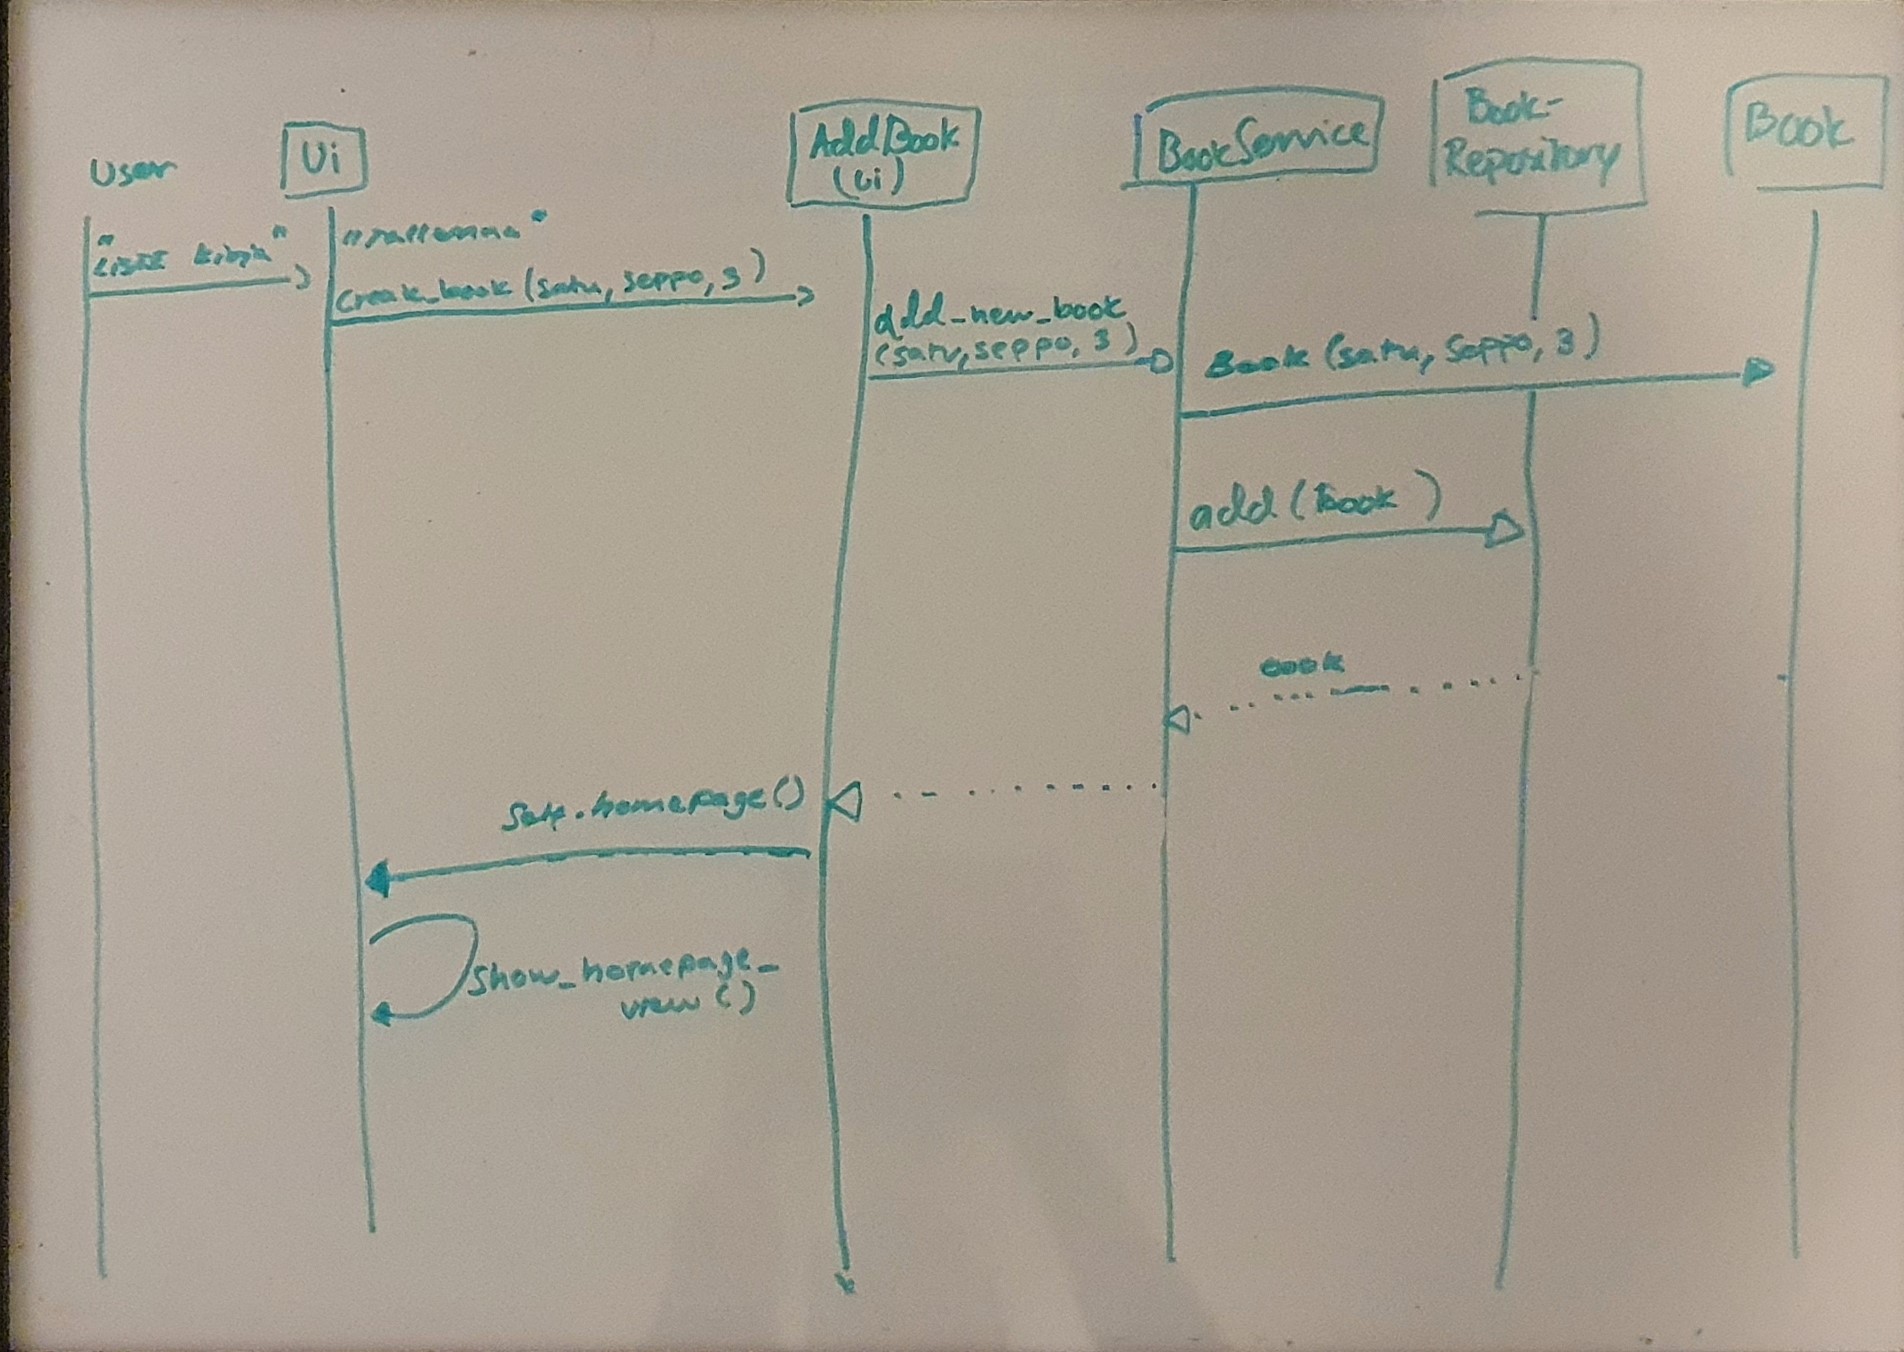 User
Ui
AddBook
(Ui)
BookService
Book-
Repository
Book
"Lisää kirja"
"Tallenna"
create_book (satu, seppo, 3)
add_new_book
(satu, seppo, 3)
Book (satu, Seppo, 3)
add (book)
book
self.homepage()
Show_homepage_
view()